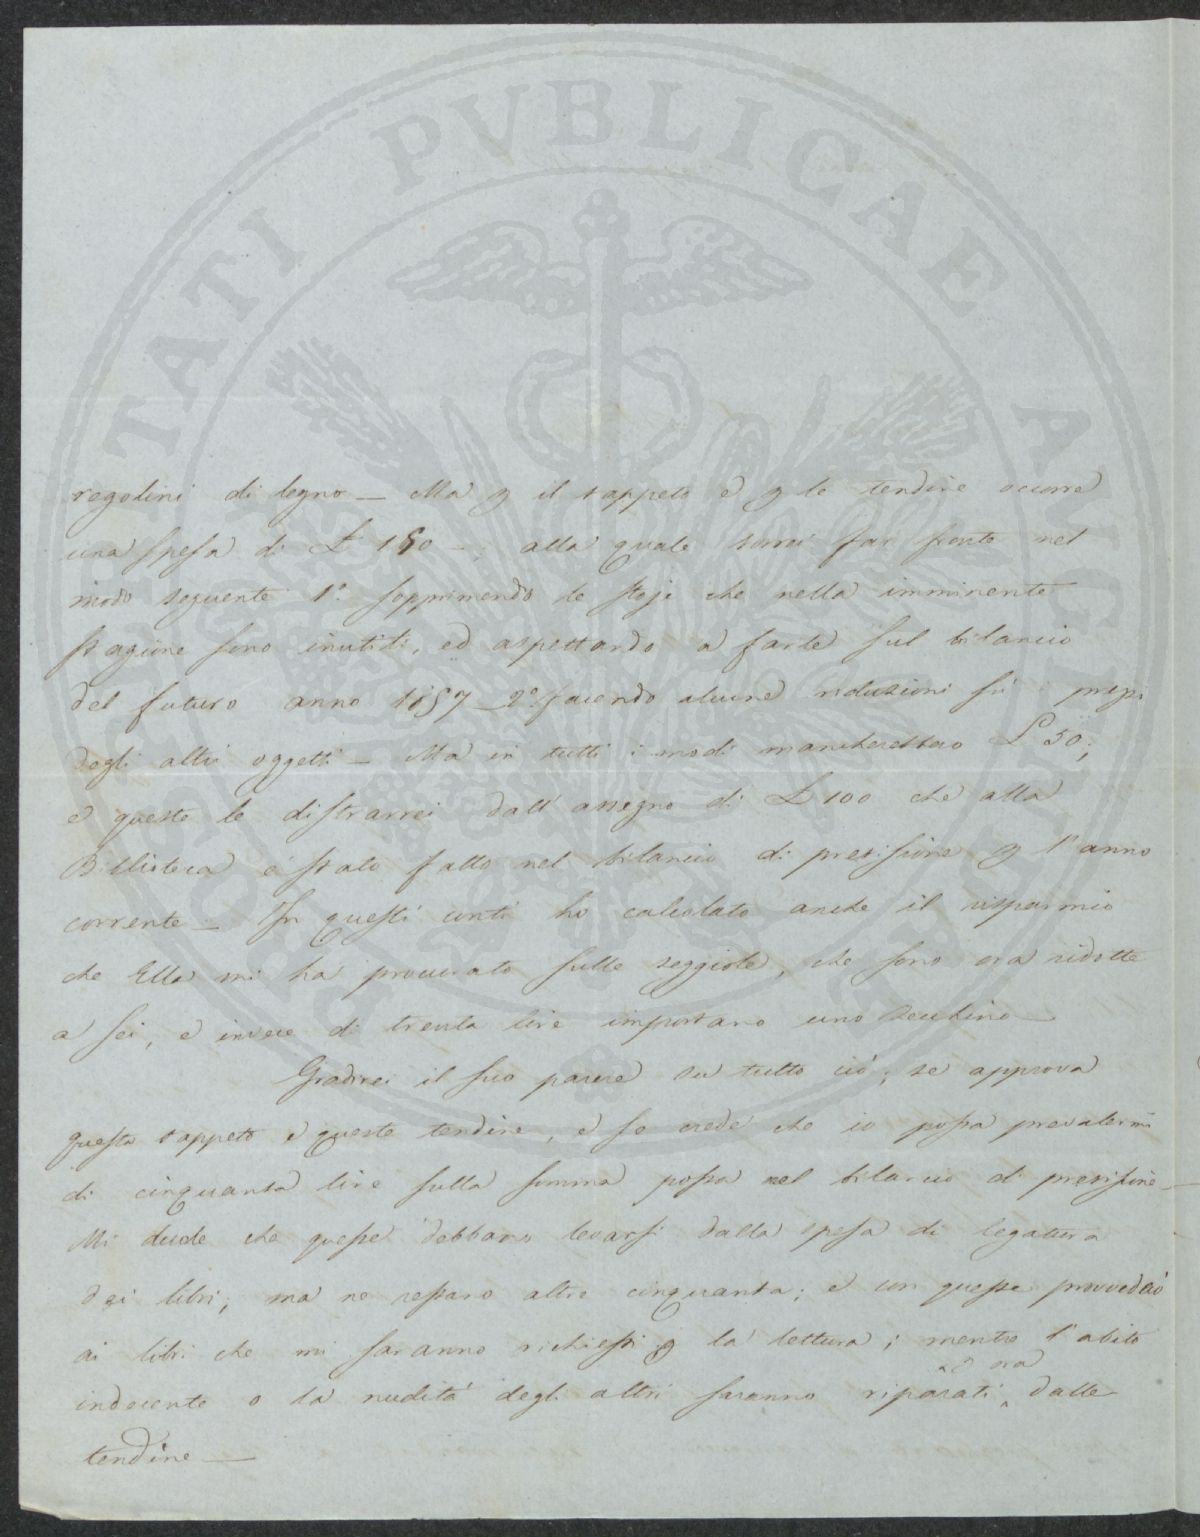 PROSPERITATI PVBLICAE AVGENDAE
regolini di legno — Ma p il tappeto e p le tendine occorre
una spesa di £ 150 —; alla quale vorrei far fronte nel
modo seguente 1°. sopprimendo le stoje che nella imminente
stagione sono inutili, ed aspettando a farle sul bilancio
del futuro anno 1857 — 2°. facendo alcune riduzioni su i prezzi
degli altri oggetti — Ma in tutti i modi mancherebbero £ 50;
e queste le distrarrei dall'assegno di £ 100 che alla
Biblioteca è stato fatto nel bilancio di previsione p l'anno
corrente — In questi conti ho calcolato anche il risparmio
che Ella mi ha procurato sulle seggiole, che sono ora ridotte
a sei, e invece di trenta lire importano uno zecchino —
Gradirei il suo parere su tutto ciò; se approva
questo tappeto e queste tendine, e se crede che io possa prevalermi
di cinquanta lire sulla somma posta nel bilancio di previsione —
Mi duole che queste debbano levarsi dalla spesa di legatura
dei libri; ma ne restano altre cinquanta; e con queste provvederò
ai libri che mi saranno richiesti p la lettura; mentre l'abito
indecente o la nudità degli altri saranno riparati dalle
ora
tendine —